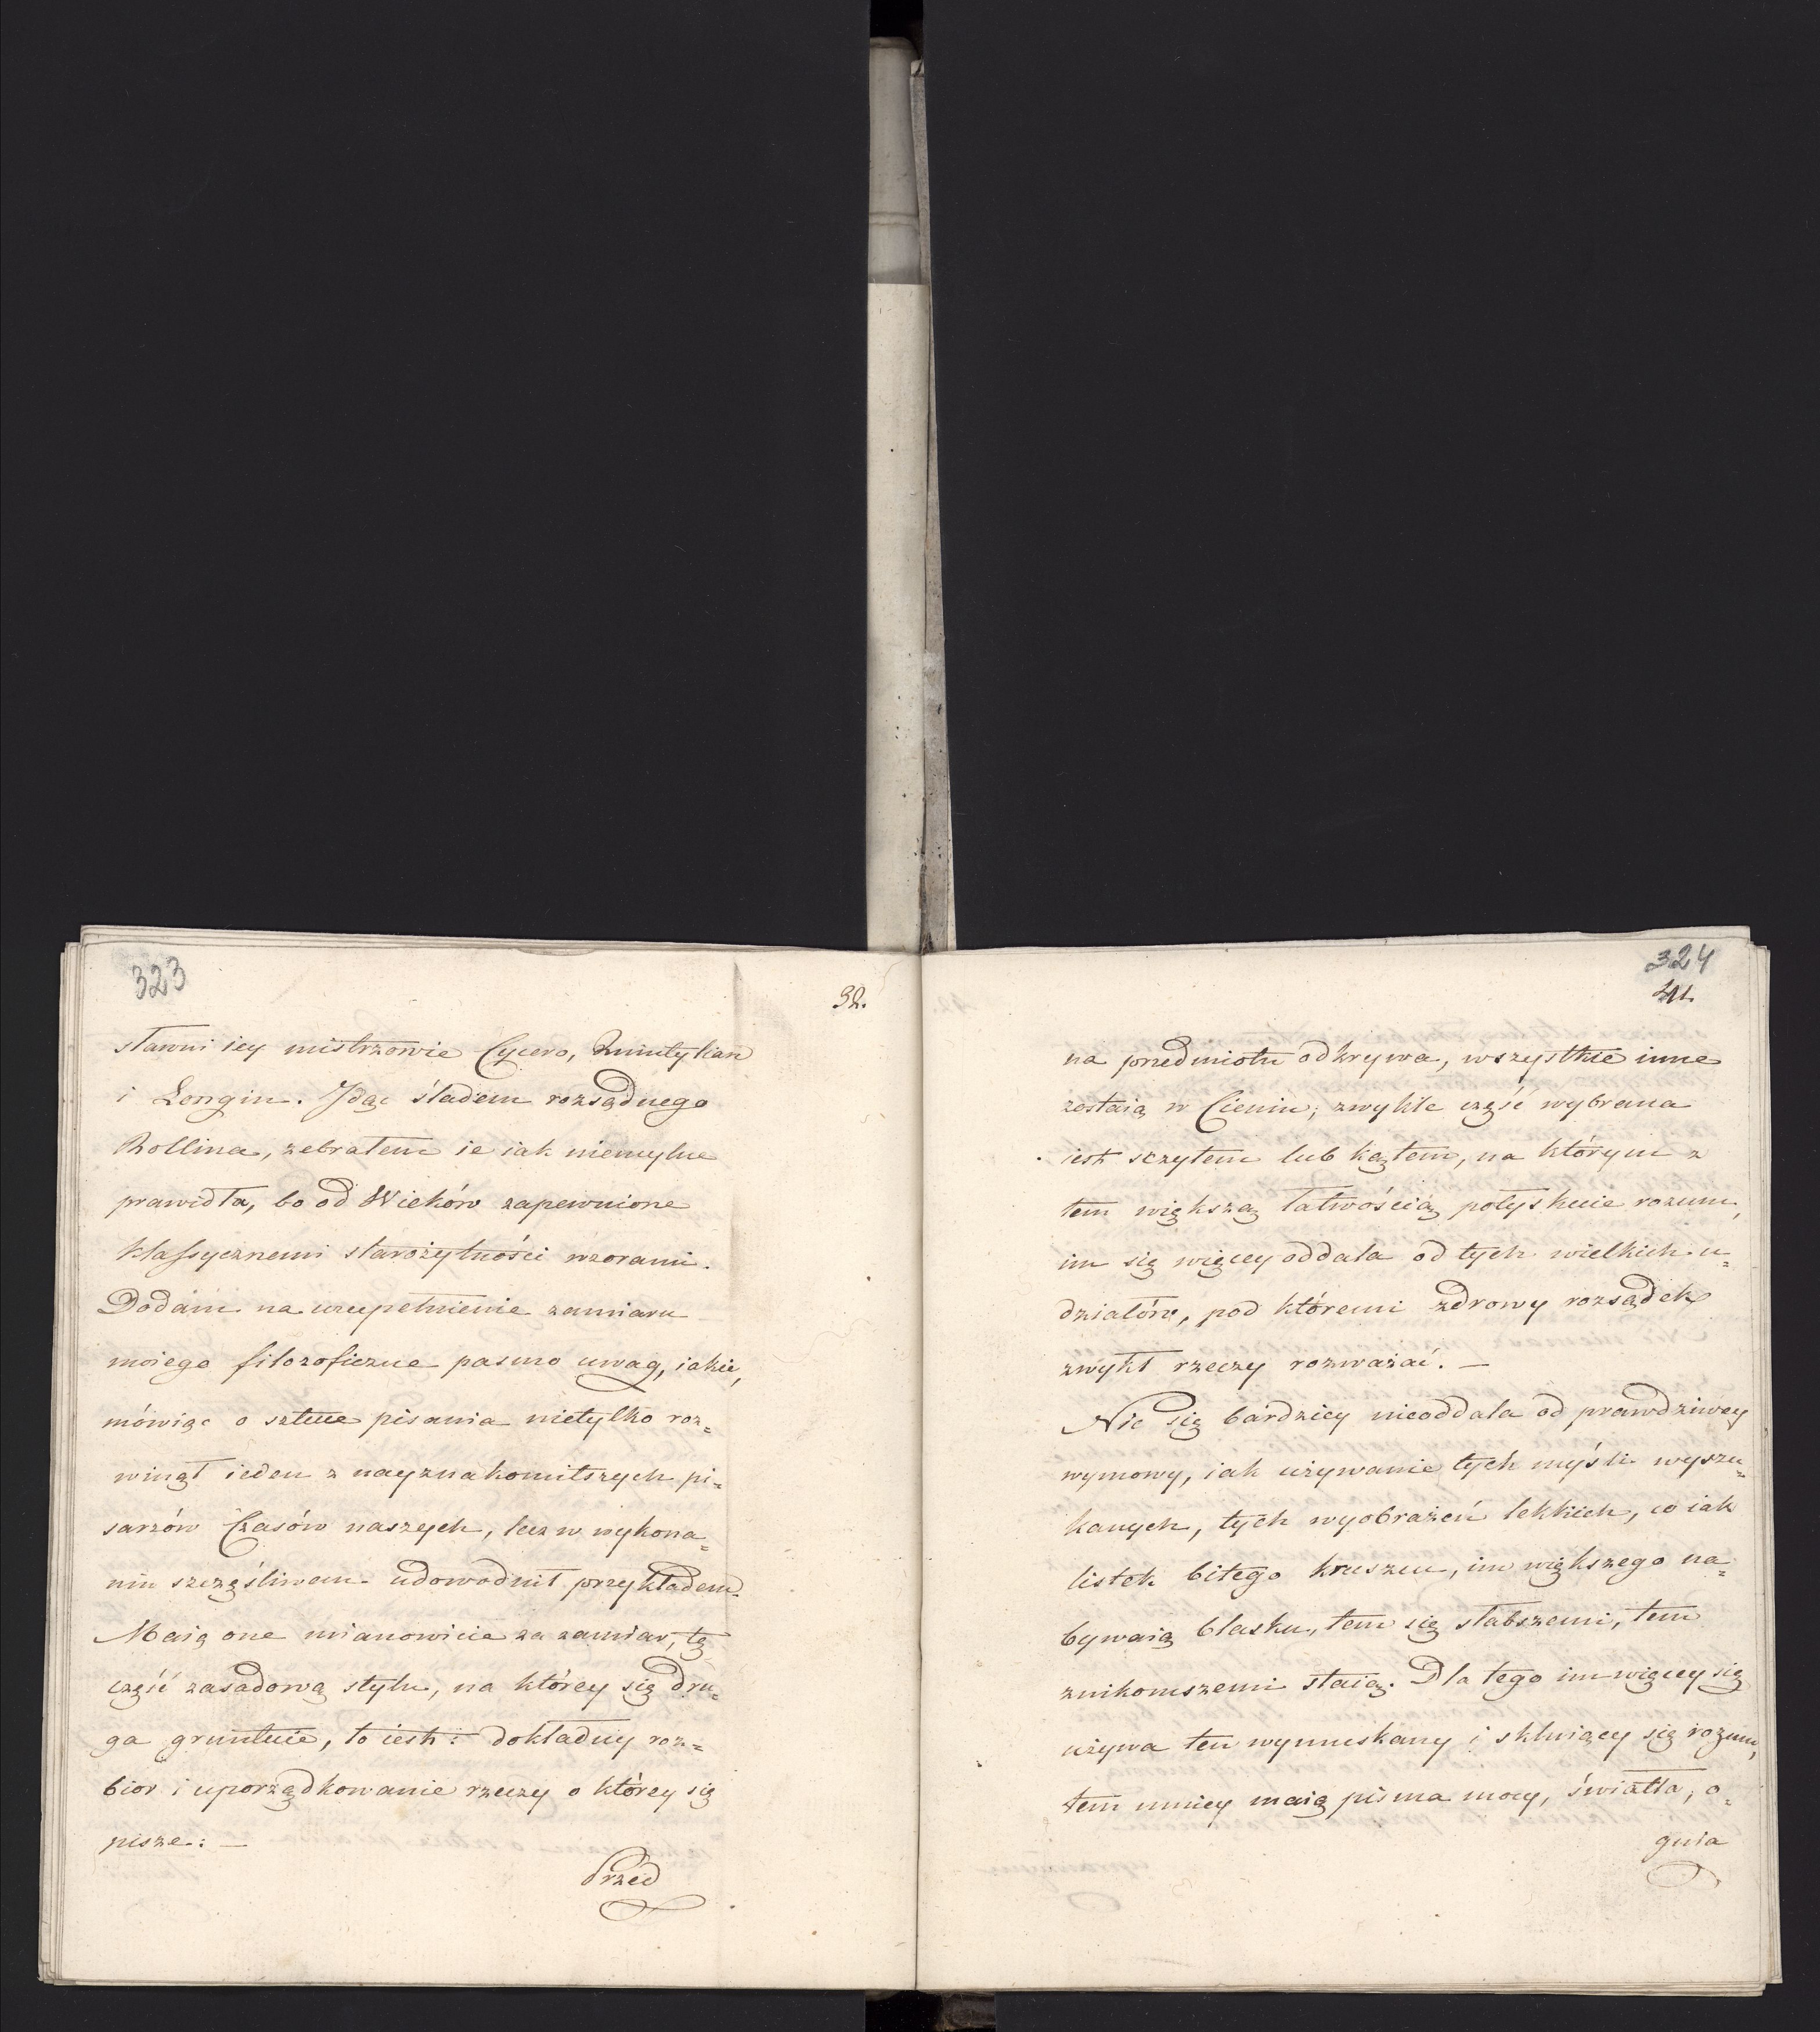 323
32.
sławni iey mistrzowie Cycero, Kwintylian
i Longin. Idąc śladem rozsądnego
Rollina, zebrałem ie iak niemylne
prawidła, bo od Wieków zapewnione
klassycznemi starożytności wzorami.
Dodam na uzupełnienie zamiaru
moiego filozoficzne pasmo uwag, iakie,
mówiąc o sztuce pisania nietylko roz=
winął ieden z nayznakomitszych pi=
sarzów Czasów naszych, lecz w wykona=
niu szczęśliwem udowodnił przykładem.
Maią one mianowicie za zamiar, tę
część zasadową stylu, na którey się dru=
ga gruntuie, to iest: dokładny roz=
bior i uporządkowanie rzeczy o którey się
pisze: —
Przed
324
41.
na przedmiotu odkrywa, wszystkie inne
zostaią w Cieniu; zwykle część wybrana
iest szzytem lub kątem, na którym z
tem większą łatwością połyskuie rozum,
im się więcey oddala od tych wielkich u=
działów, pod któremi zdrowy rozsądek
zwykł rzeczy rozważać. —
Nic się bardziey nieoddala od prawdziwey
wymowy, iak używanie tych myśli wyszu=
kanych, tych wyobrażeń lekkich, co iak
listek bitego kruszcu, im większego na=
bywaią blasku, tem się słabszemi, tem
znikomszemi staią. Dla tego im więcey się
używa ten wymuskany i sklniący się rozum,
tem mniey maią pisma mocy, światła, o=
gnia